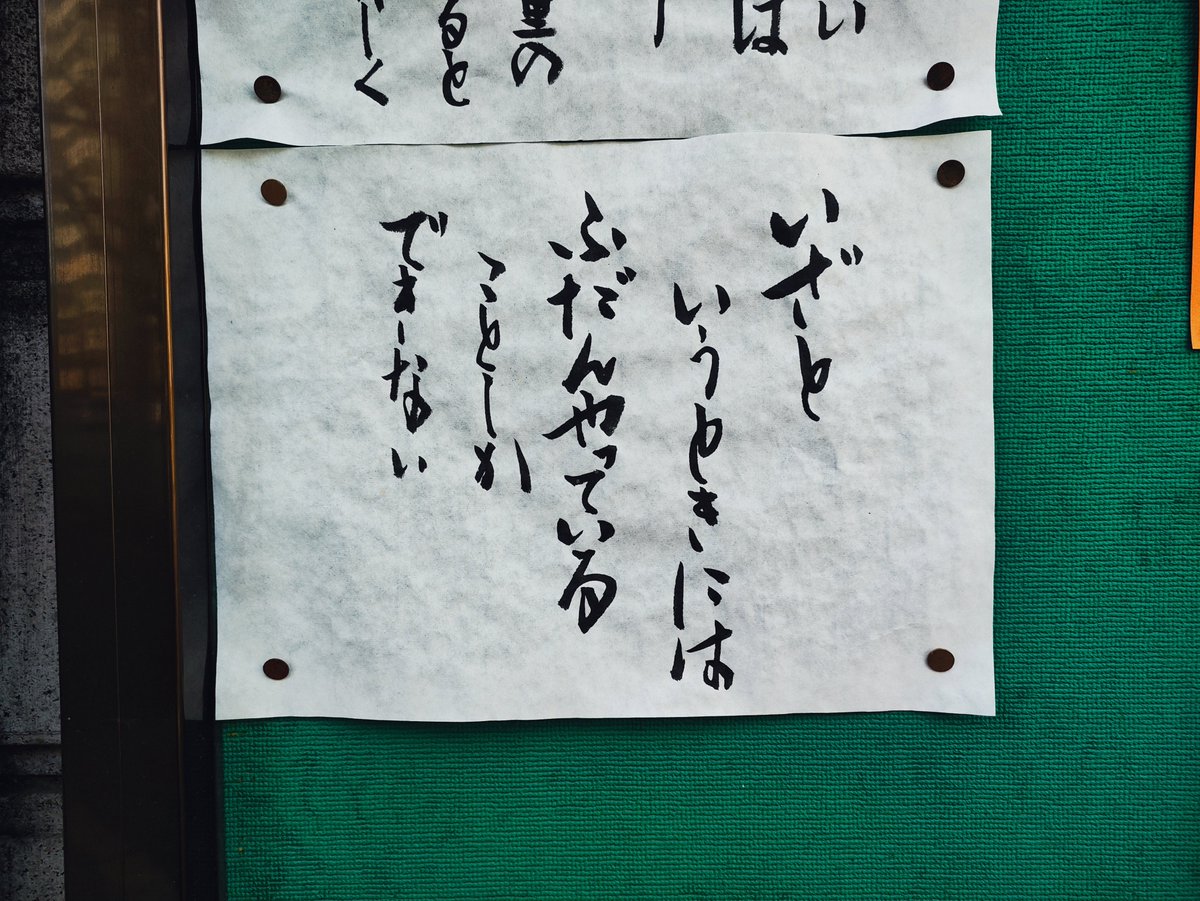 い
は
の
ると
く
いざと
いうときには
ふだんやっている
ことしか
できない